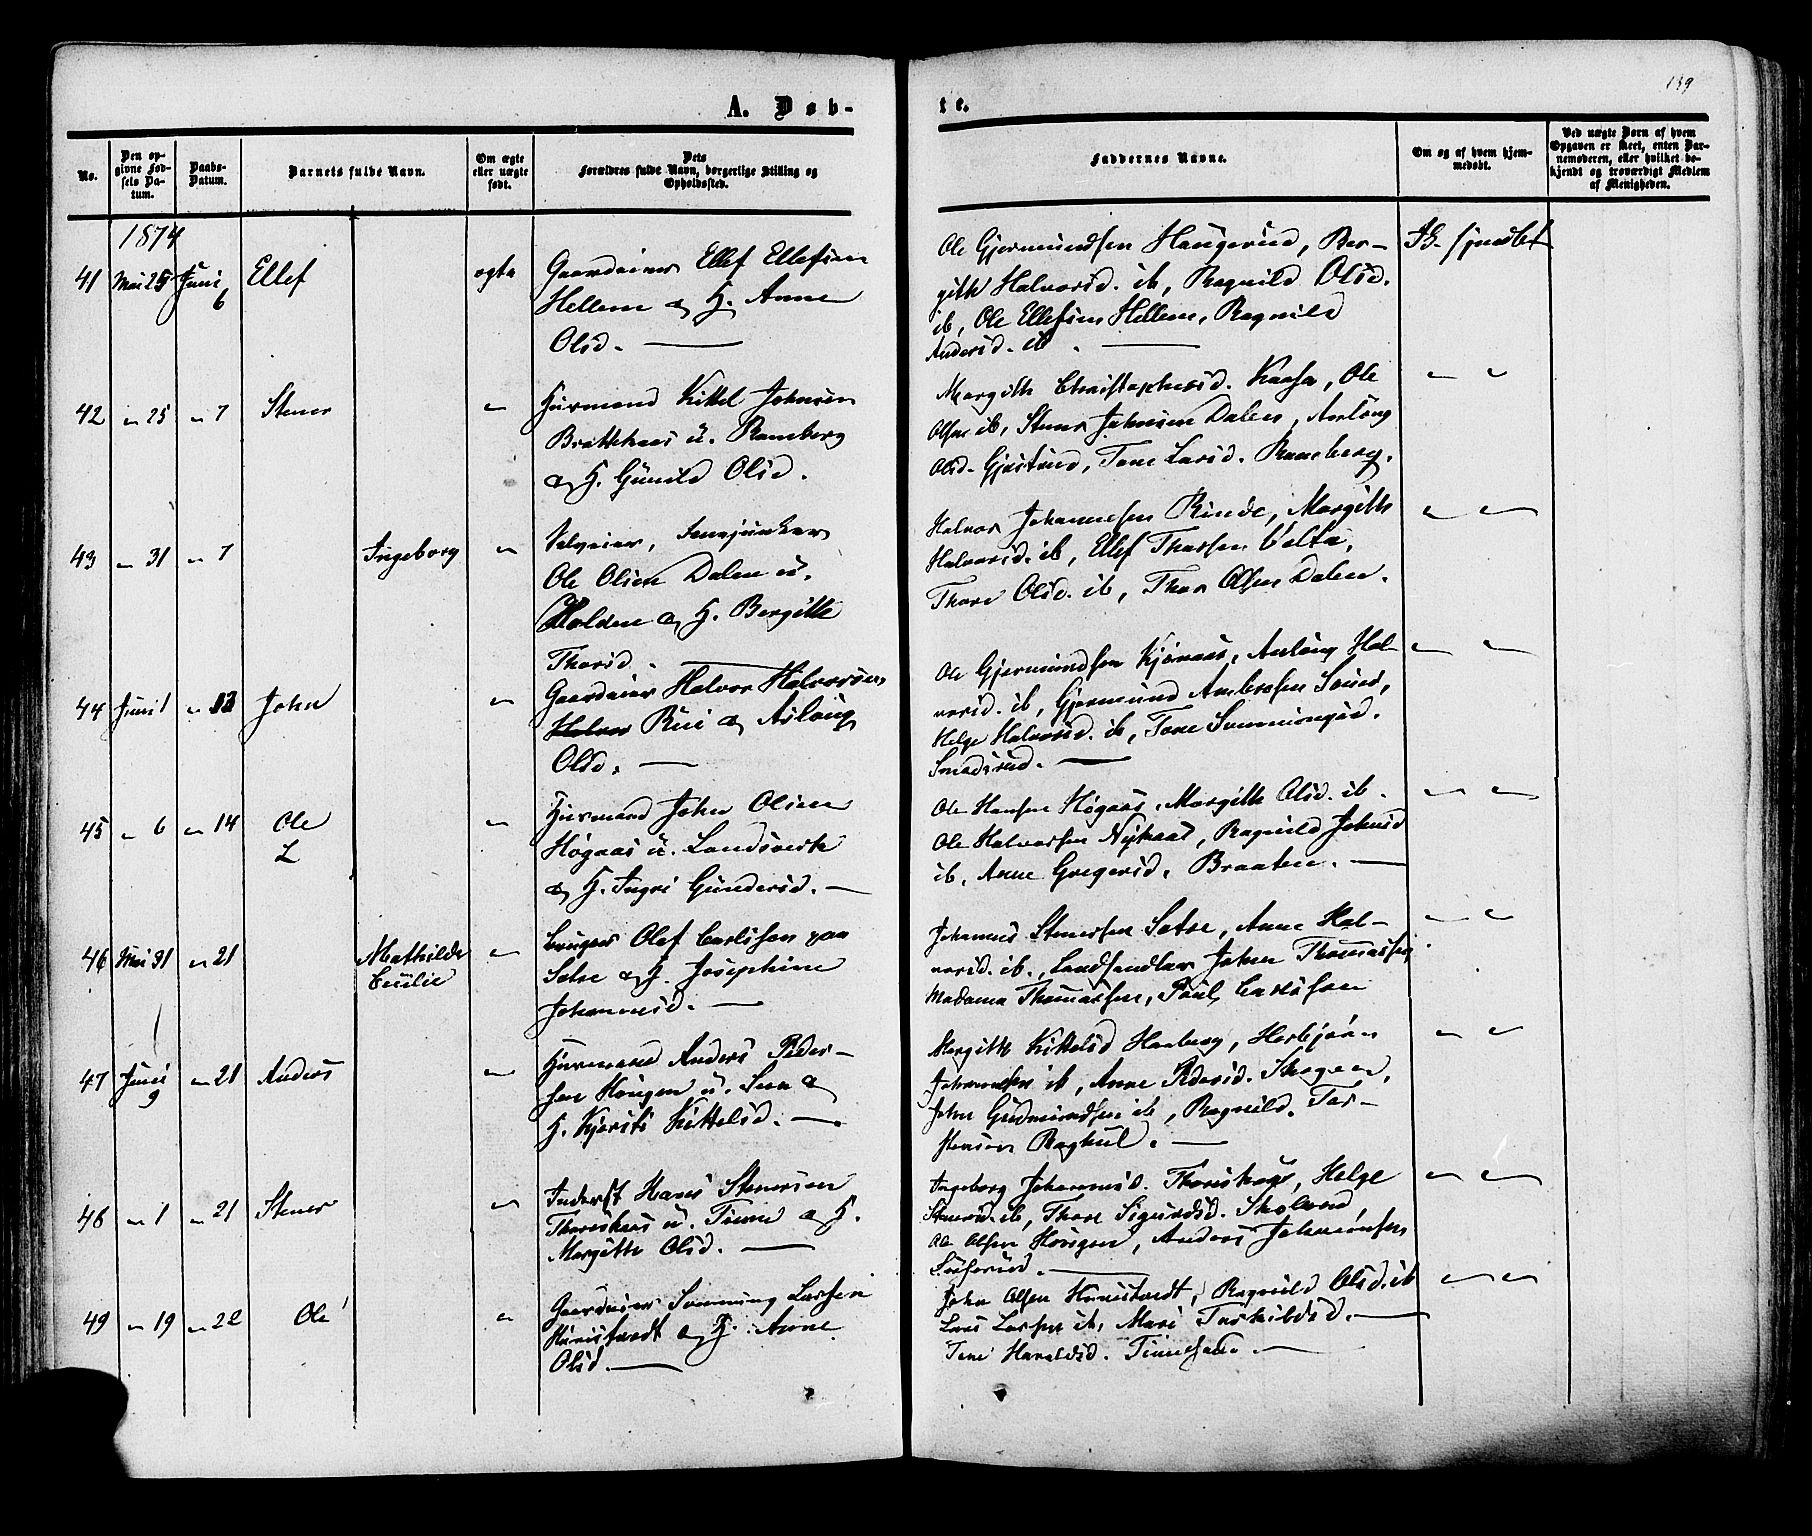 139
A. Døb-
te.
No.
Den op-
givne Fød-
sels Da-
tum.
Daabs-
Datum.
Barnets fulde Navn.
Om ægte
eller uægte
født.
Dets
Forældres fulde Navn, borgerlige Stilling og
Opholdssted.
Faddernes Navne.
Om og af hvem hjem-
medøbt.
Ved uægte Børn af hvem
Opgaven er skeet, enten Bar-
nemoderen, eller hvilket be-
kjendt og troværdigt Medlem
af Menigheden.
1874
41 Mai 25 Juni 6 Ellef ægte
Gaardeier Ellef Ellefsen
Hellem og H. Anne
Olsd. —
Ole Gjermundsen Haugerud, Ber-
gith Halvorsd. ib, Ragnild Olsd.
ib, Ole Ellefsen Hellem, Ragnild
Andersd. ib. —
Ik. hjemdøbt
42 " 25 " 7 Stener "
Huusmand Kittel Johnsen
Brattekaas u. Ramberg
og H. Gunild Olsd.
Margith Christophersd. Kaasa, Ole
Olsen ib, Stener Johnsen Dalen, Aslaug
Olsd. Gjestrud, Tone Larsd. Ramberg.
" "
43 " 31 " 7 Ingeborg "
Selveier,
Ole Olsen Dalen u.
Holden og H. Bergitte
Thorsd. —
Halvor Johannesen Rinde, Margith
Halvorsd. ib, Ellef Thorsen Volta,
Thore Olsd. ib, Thor Olsen Dalen.
" "
44 Juni 1 " 13 John "
Gaardeier Halvor Halvorsen
Halvor Rui og Aslaug
Olsd. —
Ole Gjermundsen Kjønaas, Aslaug Hal-
vorsd. ib, Gjermund Ambrosen
Helge Halvorsd. ib, Tone Sveinungsd.
Smedsrud. —
" "
45 " 6 " 14 Ole "
Huusmand John Olsen
Høgaas u. Landsverk
og H. Ingri Gundersd. —
Ole Hansen Høgaas, Margith Olsd. ib.
Ole Halvorsen Nykaas, Ragnild Johnsd
ib, Anne Gregersd. Braaten. —
" "
46 Mai 31 " 21 Mathilde
Cecilie "
Bruger Olof Carlsson paa
Sætre og H. Josephine
Johannesd. —
Johannes Stenersen Sætre, Anne Hal-
vorsd. ib., Landhandler John Thomassen,
Madame Thomassen, Paul Carlsson
" "
47 Juni 9 " 21 Anders "
Huusmand Anders Peder-
sen Haugen u. Sem og
H. Kjersti Kittelsd. —
Margith Kittelsd Haaberg, Herbjørn
Johannesen ib, Anne Pedersd. Skogen,
John Gudmundsen ib, Ragnild Tor-
stensen —
" "
48 " 1 " 21 Stener "
Inderst Hans Stenersen
Thoreskaas u. Tinne og H.
Margith Olsd. —
Ingeborg Johannesd. Thoreskaas, Helge
Stenersd. ib, Thore Sigurdsd. Skolven,
Ole Olsen Haugen, Anders Johannesen
—
" "
49 " 19 " 22 Ole "
Gaardeier Svenung Larsen
Hunstvedt og H. Anne
Olsd. —
John Olsen Hunstvedt, Ragnild Olsd. ib
Lars Larsen ib, Mari Torkildsd. —
Tone Haraldsd. —
" "